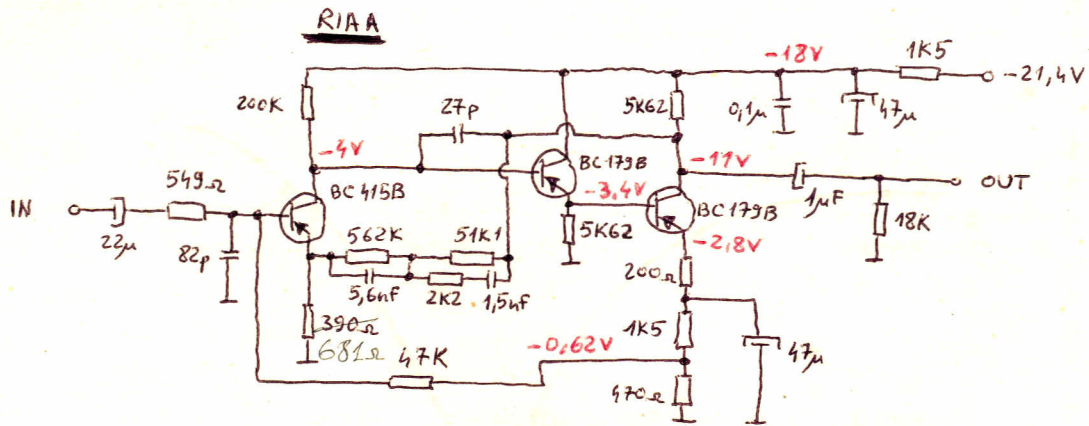 RIAA
-18V
1K5
-21,4V
200K
27p
5K62
0,1µ
47µ
-4V
BC179B
-11V
549Ω
BC415B
-3,4V
1µF
OUT
IN
BC179B
22µ
82p
562K
51K1
5K62
-2,8V
18K
5,6nf
2K2
1,5nf
200Ω
390Ω
681Ω
47K
-0,62V
1K5
47µ
470Ω